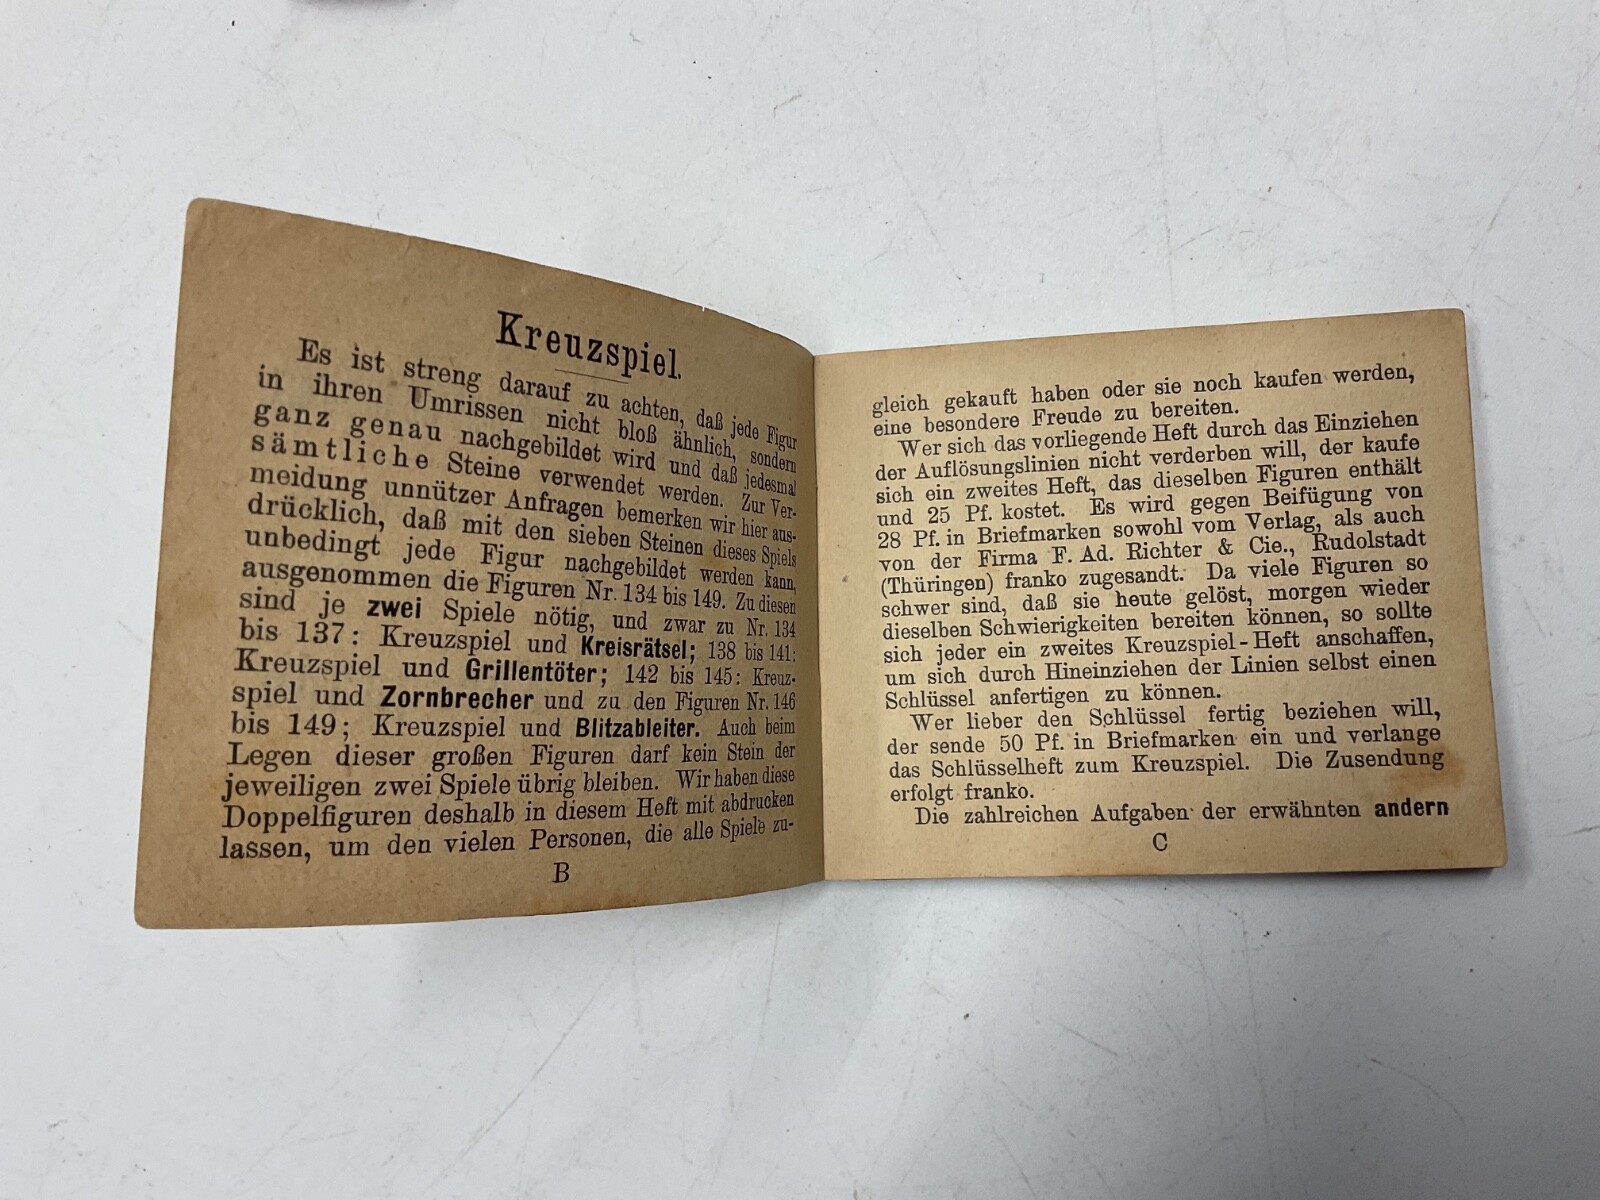 Kreuzspiel.
Es ist streng darauf zu achten, daß jede Figur
in ihren Umrissen nicht bloß ähnlich, sondern
ganz genau nachgebildet wird und daß jedesmal
sämtliche Steine verwendet werden. Zur Ver-
meidung unnützer Anfragen bemerken wir hier aus-
drücklich, daß mit den sieben Steinen dieses Spiels
unbedingt jede Figur nachgebildet werden kann,
ausgenommen die Figuren Nr. 134 bis 149. Zu diesen
sind je zwei Spiele nötig, und zwar zu Nr. 134
bis 137: Kreuzspiel und Kreisrätsel; 138 bis 141:
Kreuzspiel und Grillentöter; 142 bis 145: Kreuz-
spiel und Zornbrecher und zu den Figuren Nr. 146
bis 149; Kreuzspiel und Blitzableiter. Auch beim
Legen dieser großen Figuren darf kein Stein der
jeweiligen zwei Spiele übrig bleiben. Wir haben diese
Doppelfiguren deshalb in diesem Heft mit abdrucken
lassen, um den vielen Personen, die alle Spiele zu-
B
gleich gekauft haben oder sie noch kaufen werden,
eine besondere Freude zu bereiten.
Wer sich das vorliegende Heft durch das Einziehen
der Auflösungslinien nicht verderben will, der kaufe
sich ein zweites Heft, das dieselben Figuren enthält
und 25 Pf. kostet. Es wird gegen Beifügung von
28 Pf. in Briefmarken sowohl vom Verlag, als auch
von der Firma F. Ad. Richter & Cie., Rudolstadt
(Thüringen) franko zugesandt. Da viele Figuren so
schwer sind, daß sie heute gelöst, morgen wieder
dieselben Schwierigkeiten bereiten können, so sollte
sich jeder ein zweites Kreuzspiel-Heft anschaffen,
um sich durch Hineinziehen der Linien selbst einen
Schlüssel anfertigen zu können.
Wer lieber den Schlüssel fertig beziehen will,
der sende 50 Pf. in Briefmarken ein und verlange
das Schlüsselheft zum Kreuzspiel. Die Zusendung
erfolgt franko.
Die zahlreichen Aufgaben der erwähnten andern
C